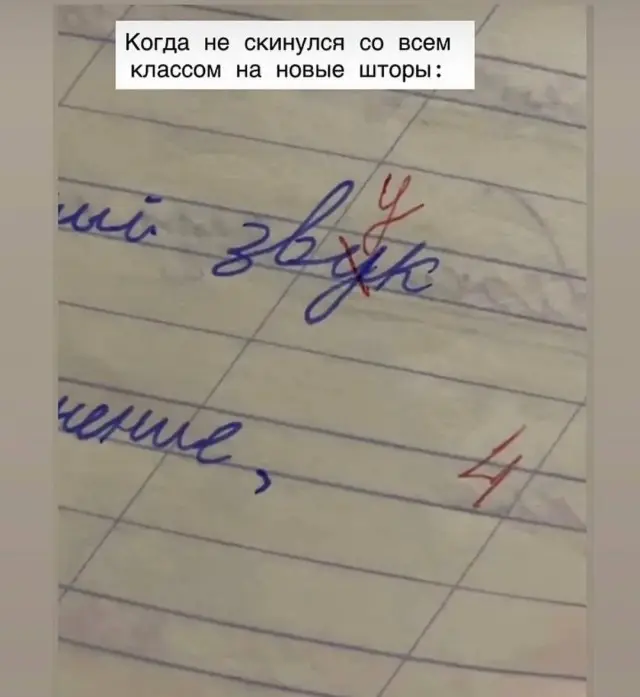 Когда не скинулся со всем
классом на новые шторы:
у
ный звук
нение,
4